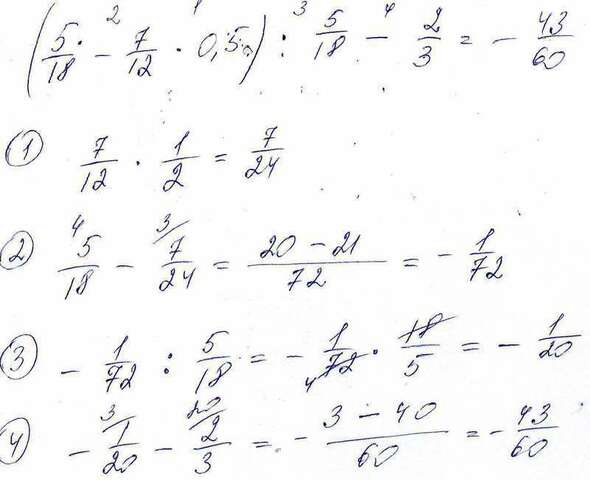 (5/18 - 7/12 · 0,5) : 5/18 - 2/3 = - 43/60
① 7/12 · 1/2 = 7/24
② 5/18 - 7/24 = 20 - 21/72 = - 1/72
③ - 1/72 : 5/18 = - 1/72 · 18/5 = - 1/20
④ - 1/20 - 2/3 = - 3 - 40/60 = - 43/60